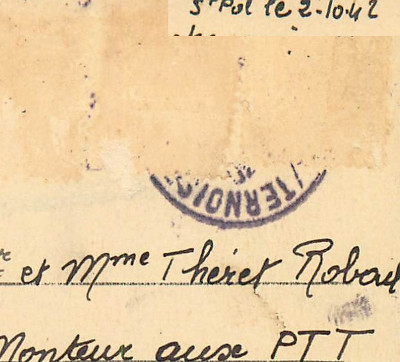 St Pol le 2-10-42
/TERNOIS
et Mme Théret Robert
Monteur aux PTT